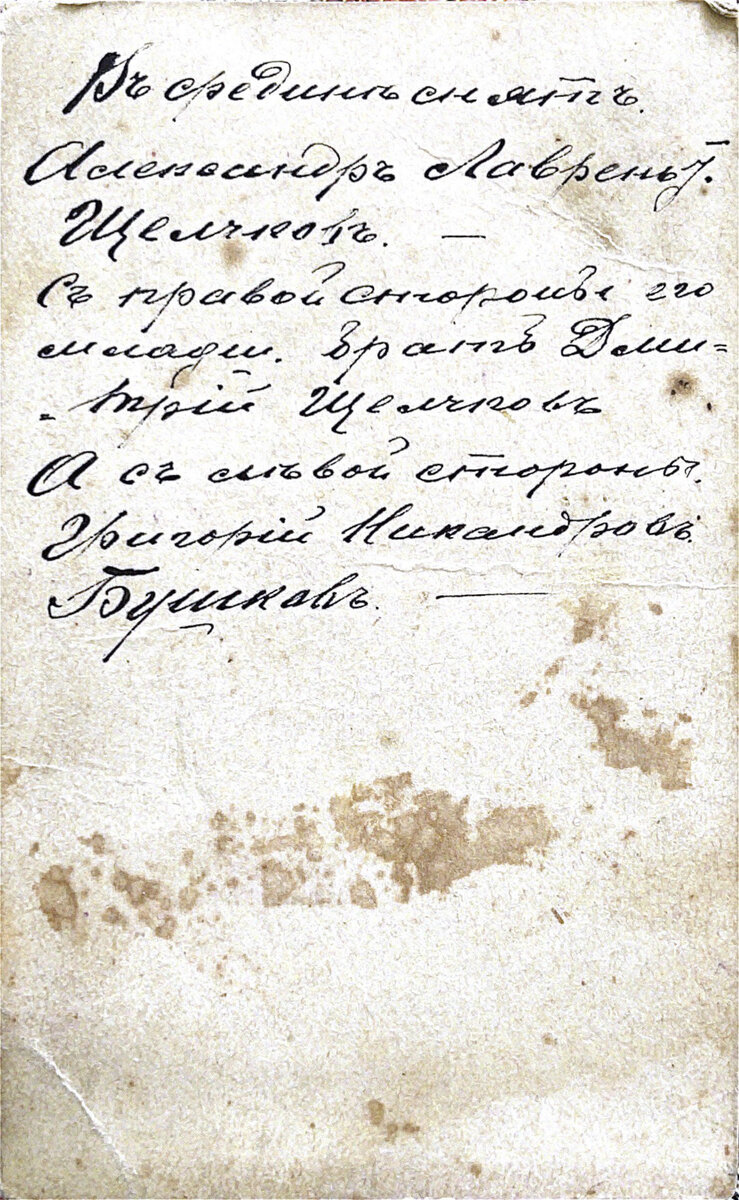 Въ срединѣ снятъ.
Александръ Лаврентј.
Щелчковъ. —
Съ правой стороны его
младш. братъ Дми=
= трій Щелчковъ
А съ лѣвой стороны.
Григорій Никандровъ.
Бушковъ. —